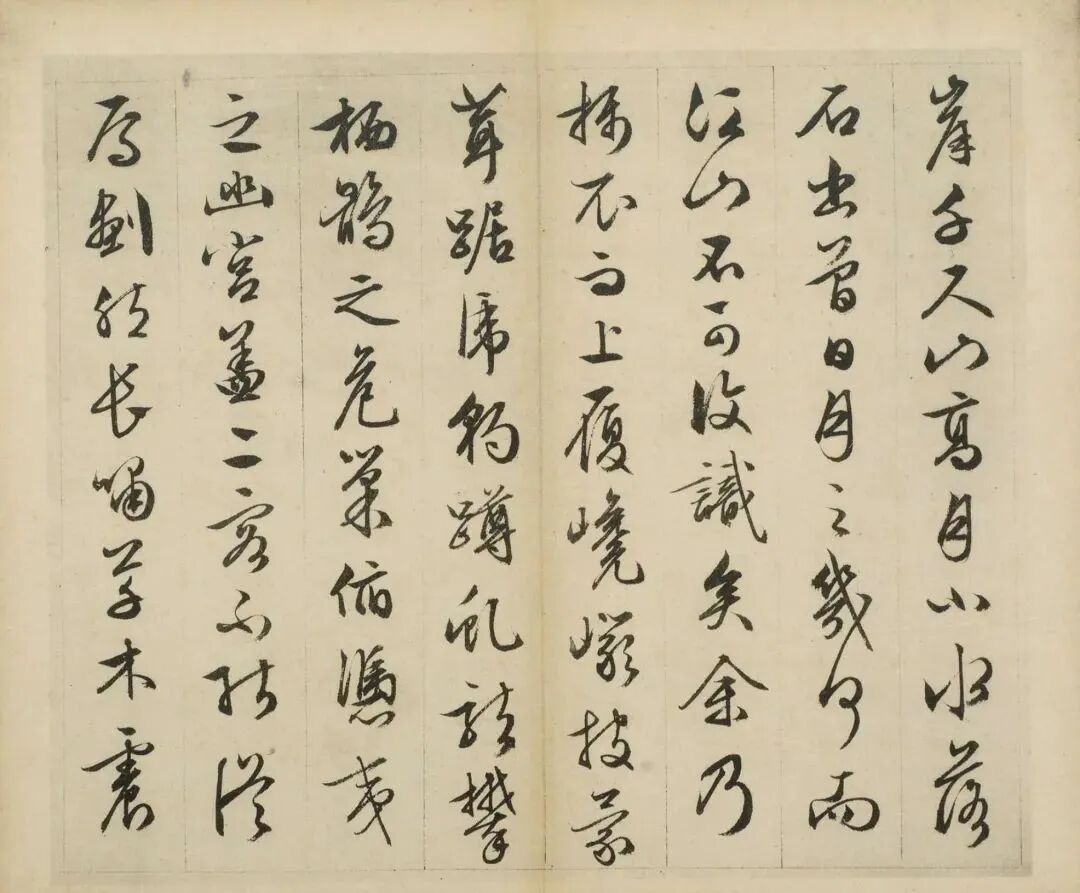 岸千尺山高月小水落
石出曾日月之幾何而
江山不可復識矣余乃
攝衣而上履巉巖披蒙
茸踞虎豹蹲虬龍攀
栖鶻之危巢俯憑夷
之幽宮蓋二客不能從
焉劃然長嘯草木震